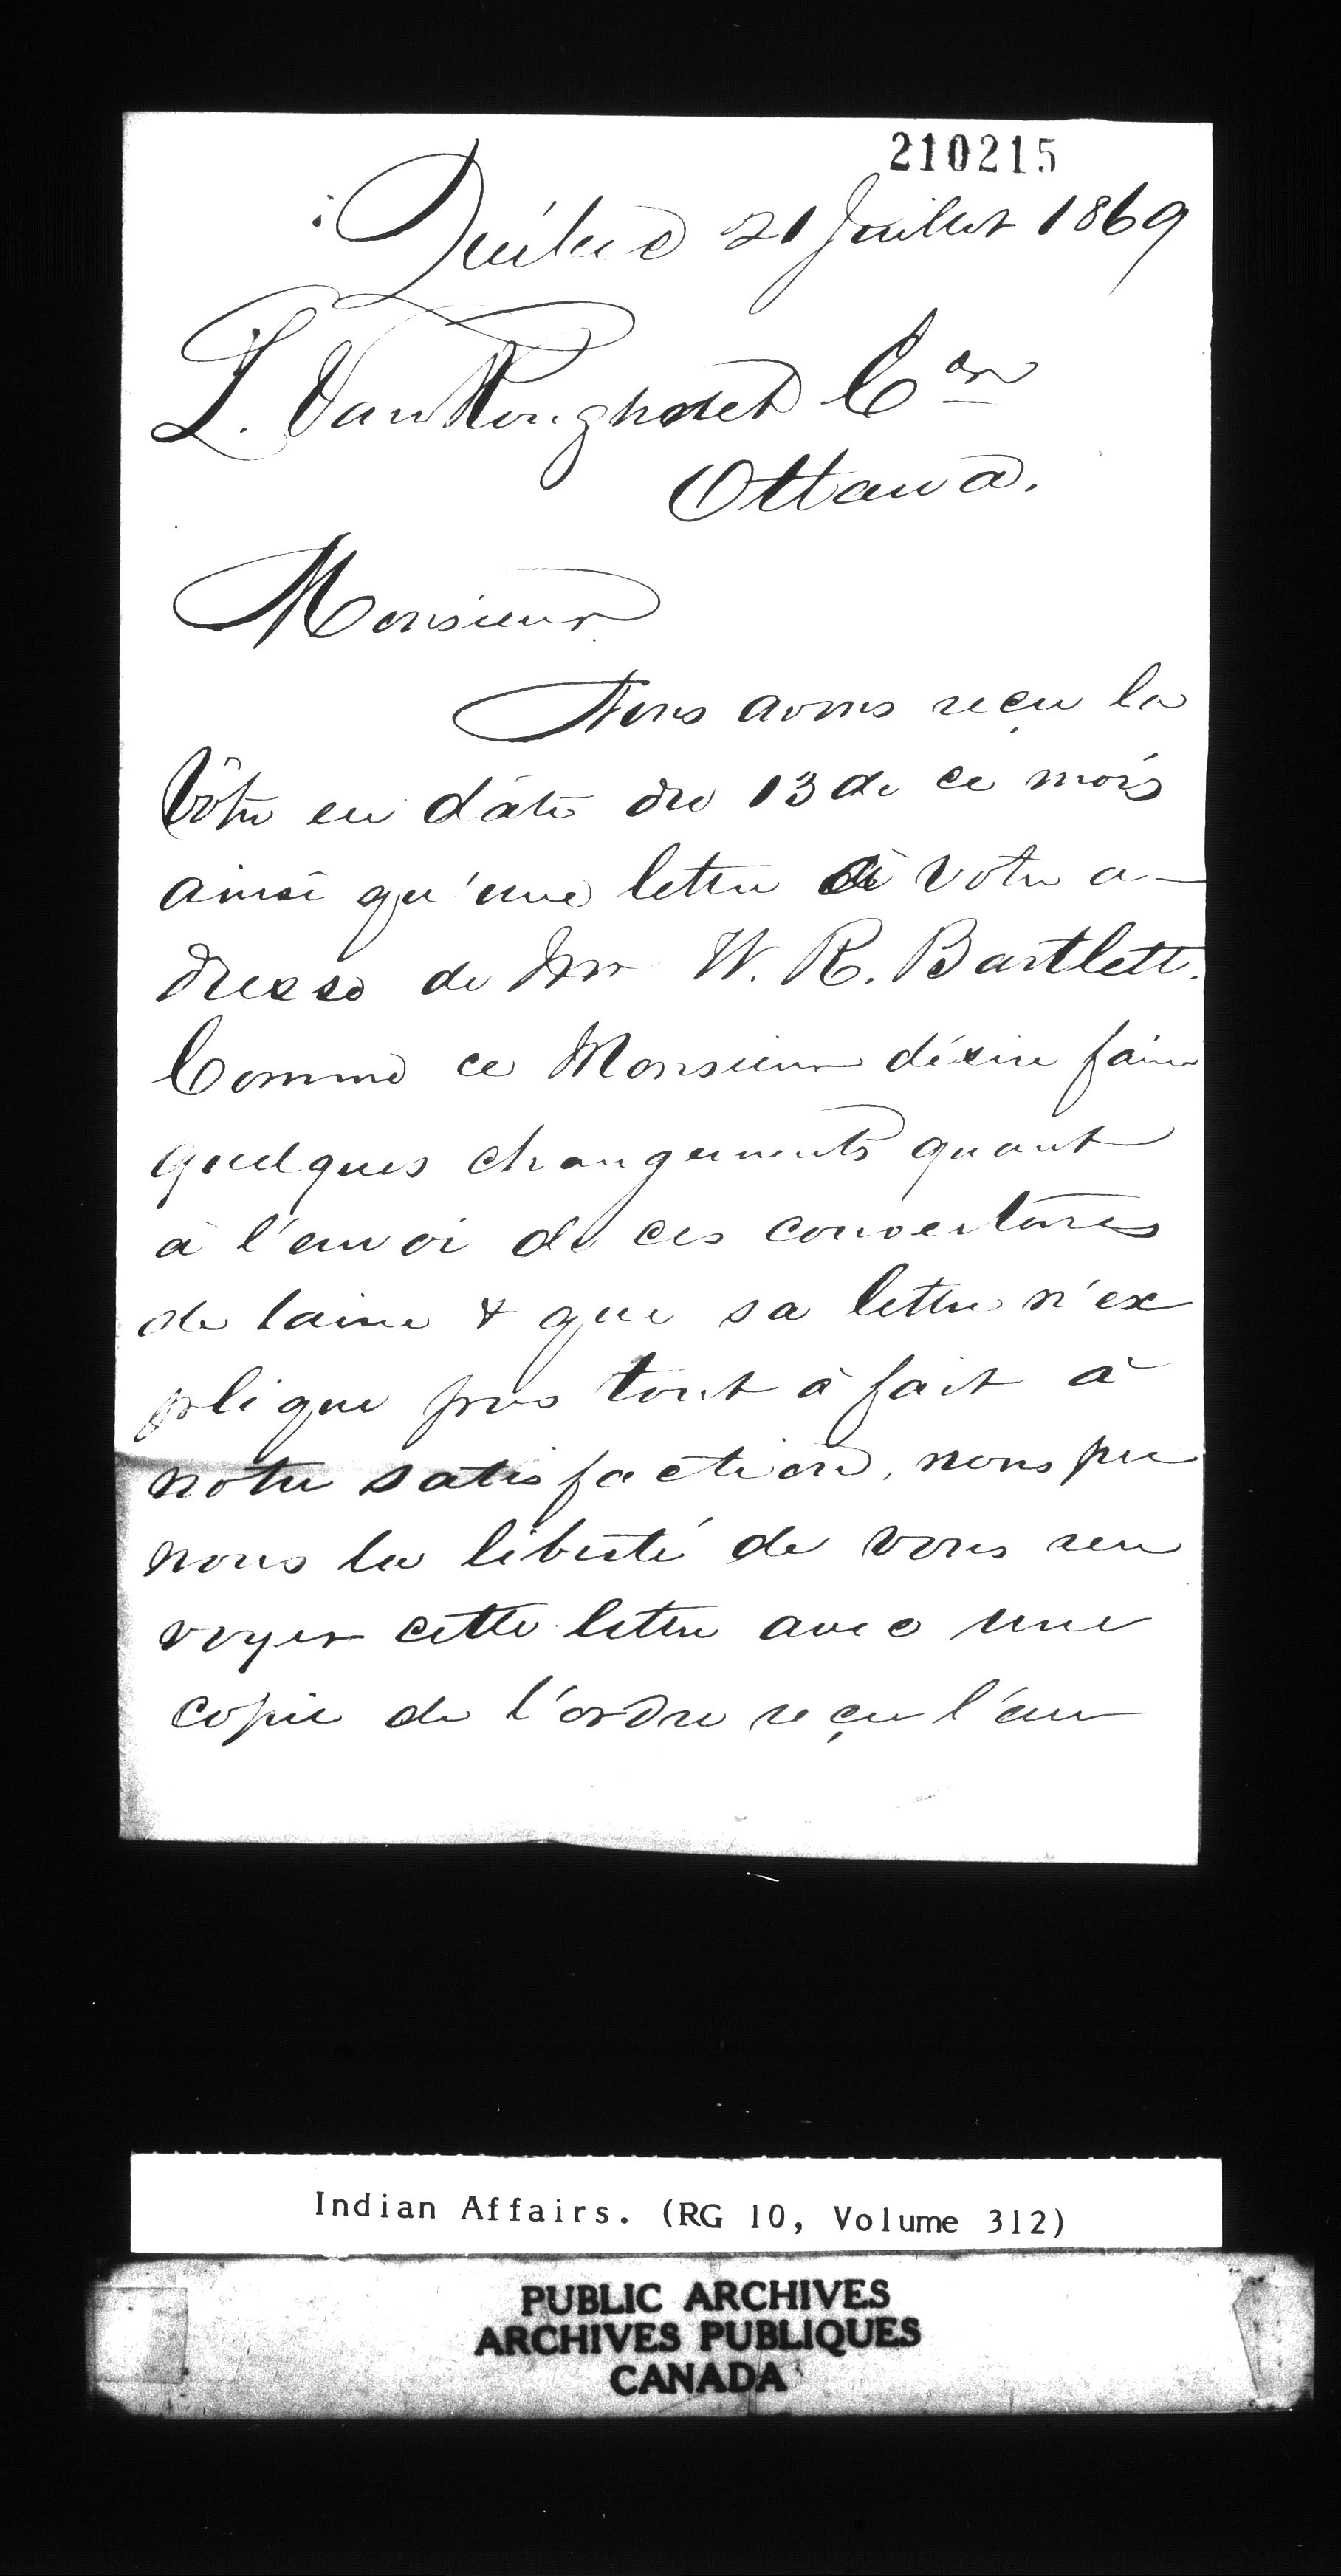 210215
Québec 21 Juillet 1869
L. VanKoughnet Ecr
Ottawa.
Monsieur
Nous avons reçu la
Vôtre en date du 13 de ce mois
ainsi qu'une lettre à votre a-
dresse de Mr W. R. Bartlett.
Comme ce Monsieur désire faire
quelques changements quant
à l'envoi de ces couvertures
de laine & que sa lettre n'ex
plique pas tout à fait à
notre satisfaction, nous pre
nons la liberté de vous ren
voyer cette lettre avec une
copie de l'ordre reçu l'an
Indian Affairs. (RG 10, Volume 312)
PUBLIC ARCHIVES
ARCHIVES PUBLIQUES
CANADA